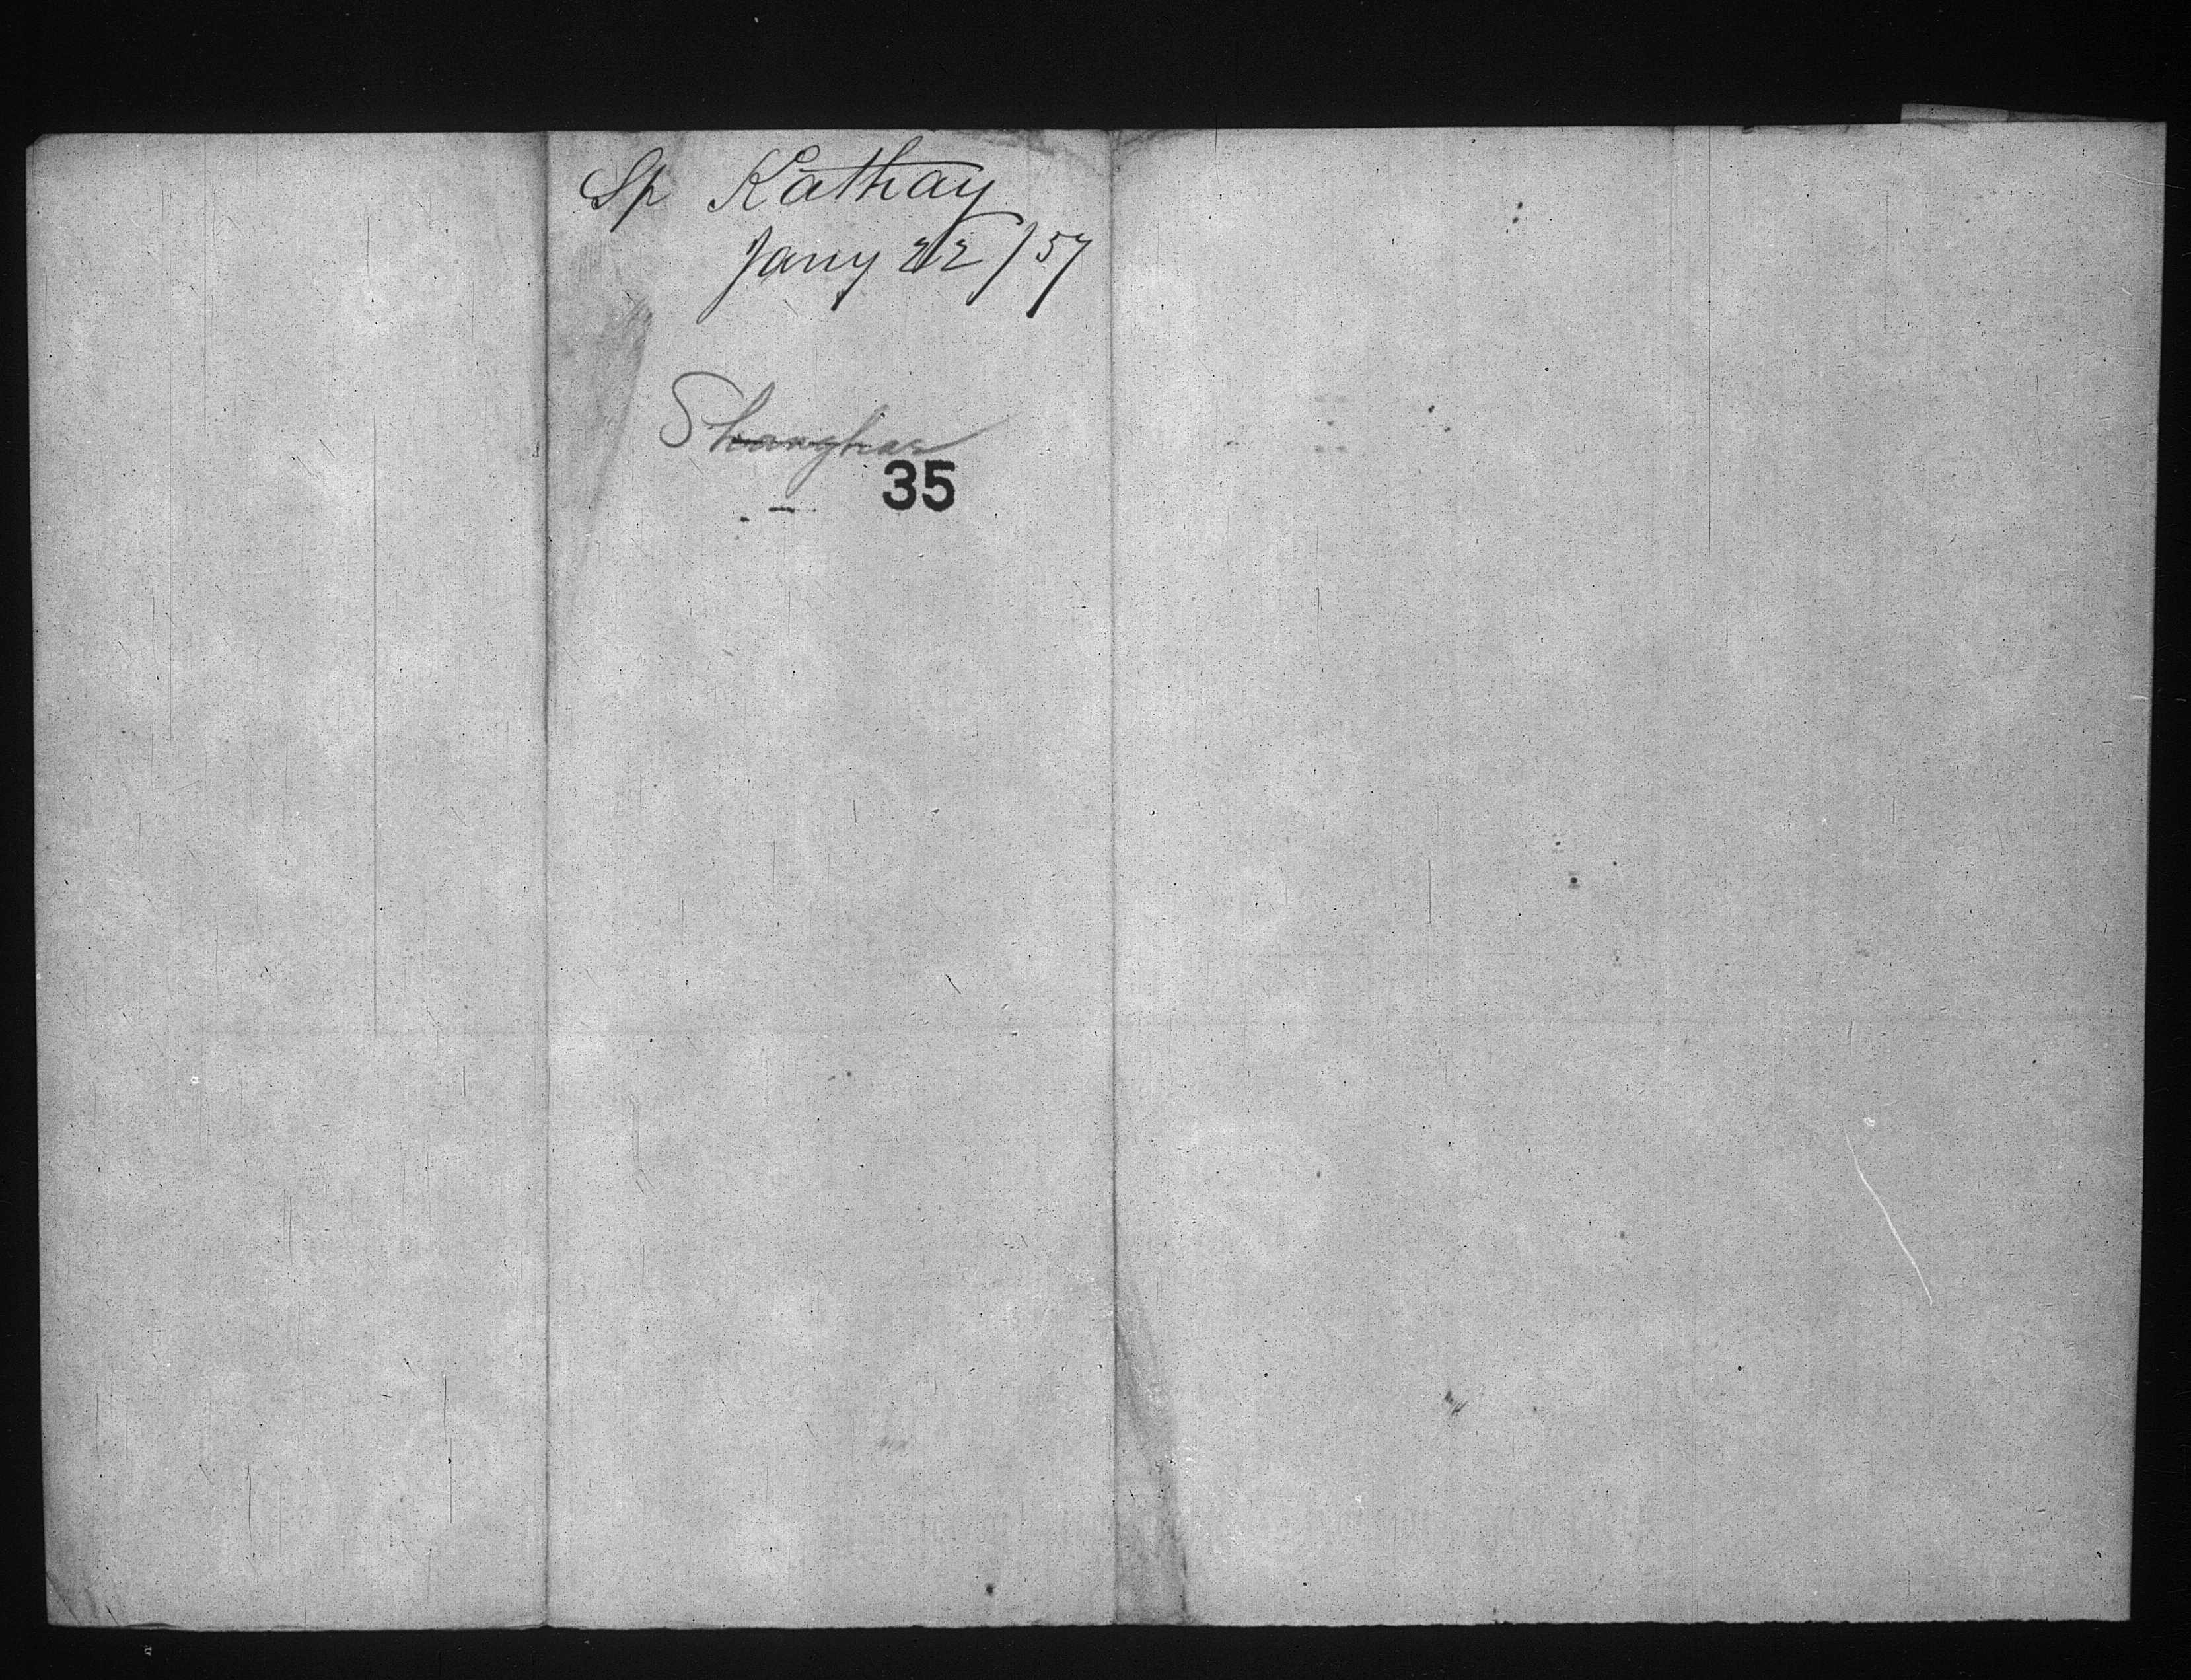 Sp Kathay
Jany 22/57
Shanghae
35